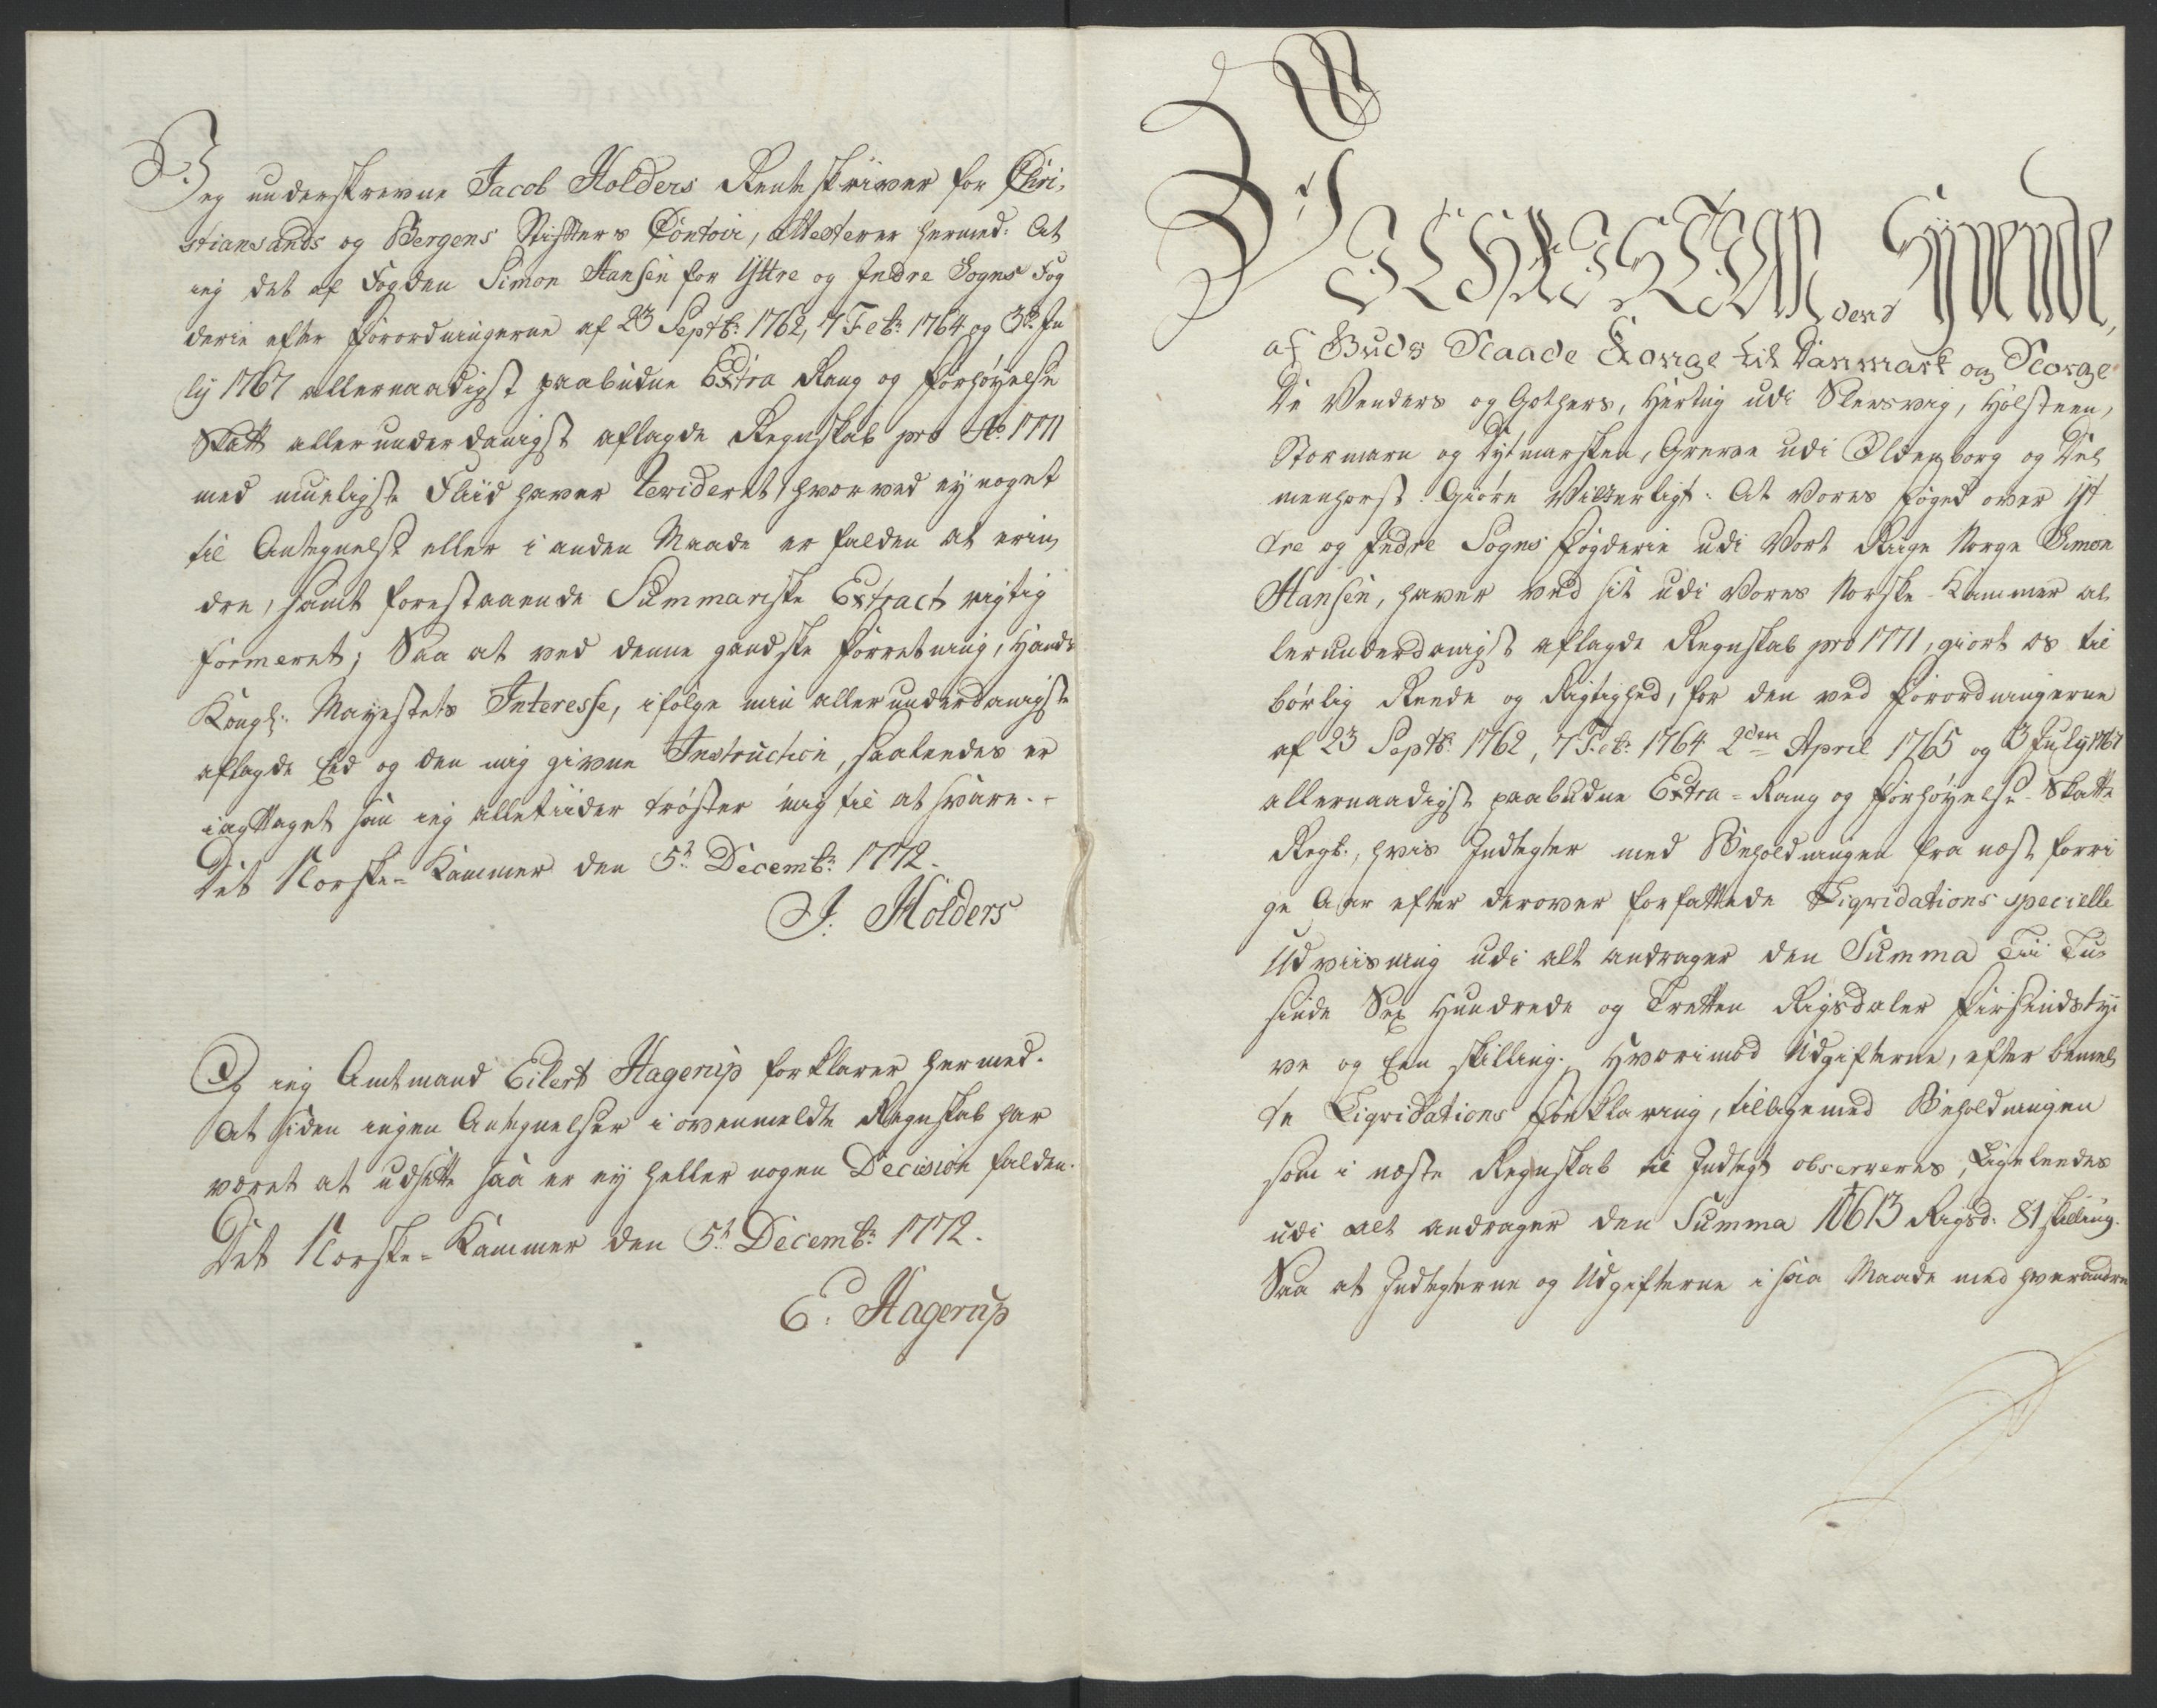 Jeg underskrevne Jacob Holders Renteskriver for Chri,
stiansands og Bergens Stifters Contoir, attesterer hermed: At
ieg det af Fogden Simon Hansen for Yttre og Indre Sogns Fog
derie efter Forordningerne af 23 Septbr: 1762, 7 Febr: 1764 og 3de Ju
ly 1767 allernaadigst paabudne Extra Rang og Forhøyelse
Skatt allerunderdanigst aflagde Regnskab pro Ao. 1771
med mueligste Fliid haver revideret, hvorved ey noget
til Antegnelse eller i anden Maade er falden at erin,
dre, samt forestaaende Summariske Extract rigtig
formeret; Saa at ved denne gandske Forretning, Hands
Kongl: Mayestets Interesse, ifølge min allerunderdanigste
aflagde Eed og den mig givne Instruction, saaledes er
iagttaget som ieg alletiider trøster mig til at svare. -
Det Norske-Kammer den 5te Decembr: 1772.
J. Holders
Og ieg Amtmand Eilert Hagerup forklarer hermed.
At siden ingen Antegnelser i ovenmeldte Regnskab har
været at udsætte saa er ey heller nogen Decision falden.
Det Norske-Kammer den 5te Decembr: 1772.
E. Hagerup
Wi CHRISTIAN den Syvende,
af Guds Naade Konge til Danmark og Norge
De Venders og Gothers, Hertug udi Slesvig, Holsteen,
Stormarn og Dytmarsken, Greve udi Oldenborg og Del,
menhorst Giøre Vitterligt: At Vores Foged over Yt
tre og Indre Sogns Fogderie udi Vort Riige Norge Simon
Hansen, haver ved sit udi Vores Norske-Kammer al,
lerunderdanigst aflagde Regnskab pro 1771, giort os til
børlig Reede og Rigtighed, for den ved Forordningerne
af 23 Septbr: 1762, 7 Febr: 1764 2den April 1765 og 3 July 1767
allernaadigst paabudne Extra-Rang og Forhøyelse-Skatte
Regb., hvis Indtegter med Beholdningen fra næst forri
ge Aar efter derover forfattede Liqvidations specielle
Udviisning udi alt andrager den Summa Tii Tu,
sinde Sex Hundrede og Tretten Rigsdaler Firsindstyi
ve og Een skilling. Hvorimod Udgifterne, efter bemel,
te Liqvidations Forklaring, tilligemed Beholdningen
som i næste Regnskab til Indtegt observeres, Ligeledes
udi alt andrager den Summa 10613 Rigsd: 81 skilling.
Saa at Indtegterne og Udgifterne i saa Maade med hverandre